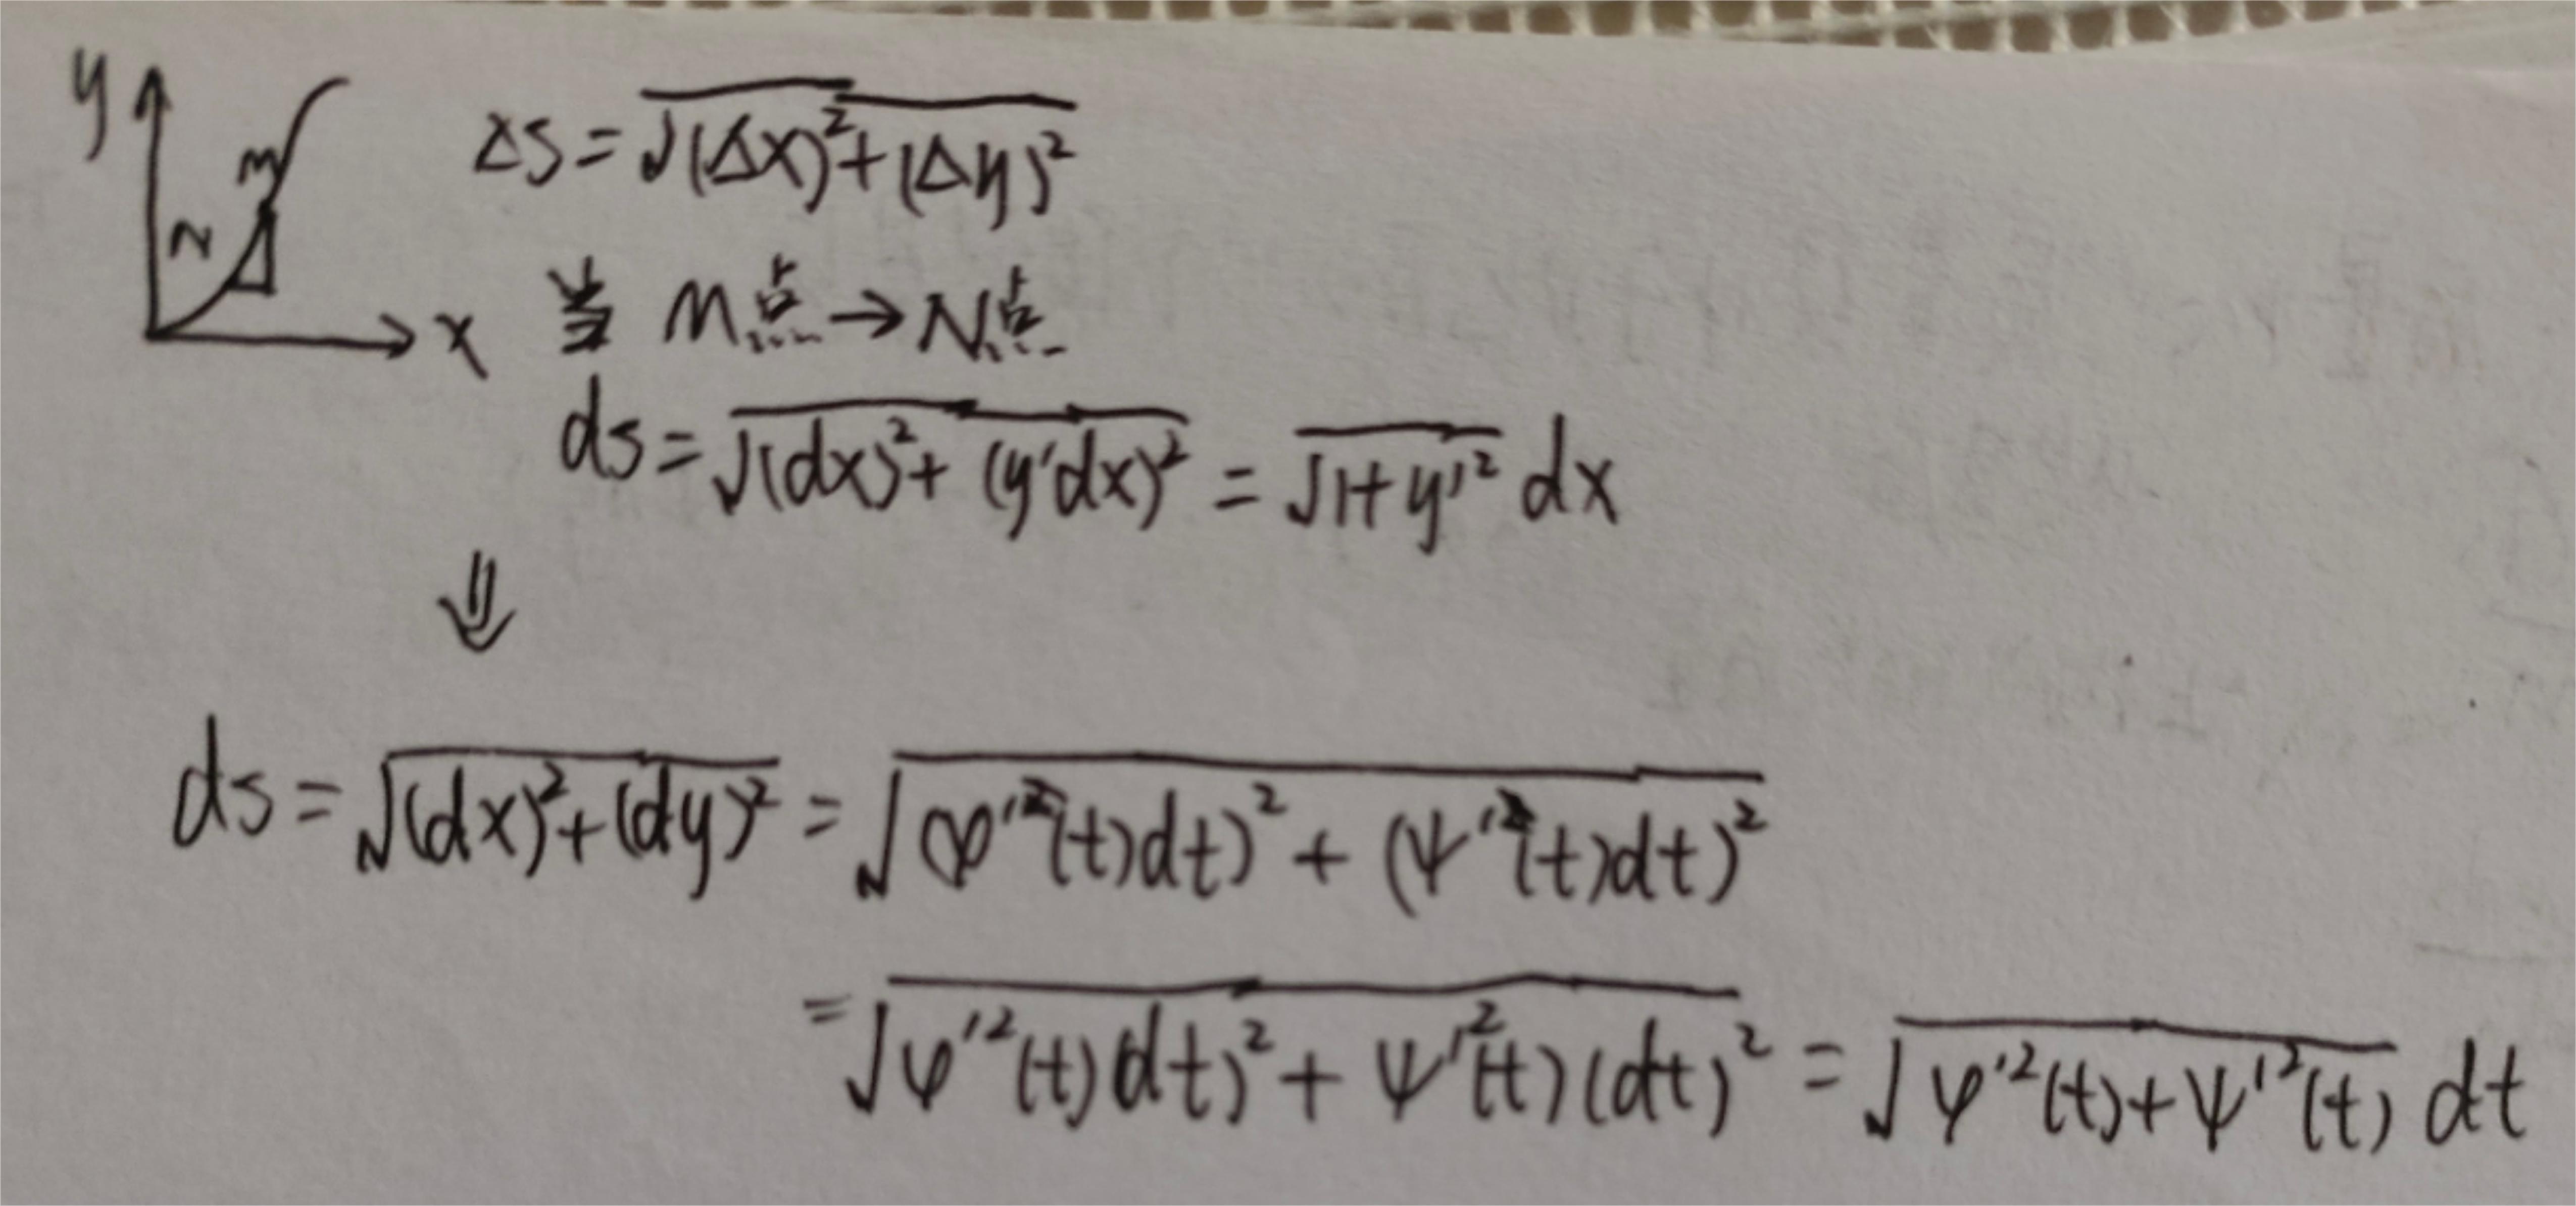 y
M
N
x
Δs=√(Δx)²+(Δy)²
当 M点→N点
ds=√(dx)²+(y'dx)²=√1+y'² dx
⇓
ds=√(dx)²+(dy)²=√(φ'²(t)dt)²+(ψ'²(t)dt)²
=√φ'²(t)(dt)²+ψ'²(t)(dt)²=√φ'²(t)+ψ'²(t) dt